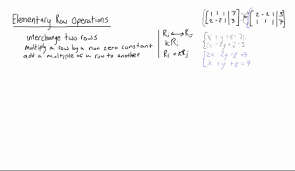 Elementary Row Operations
interchange two rows
Multiply a row by a non zero constant
add a multiple of a row to another
Ri ⟷ Rj
kRi
Ri + kRj
[1 1 1 | 7]
[2 -2 1 | 3]
[2 -2 1 | 3]
[1 1 1 | 7]
x + y + z = 7
2x - 2y + z = 3
2x - 2y + z = 3
x + y + z = 7